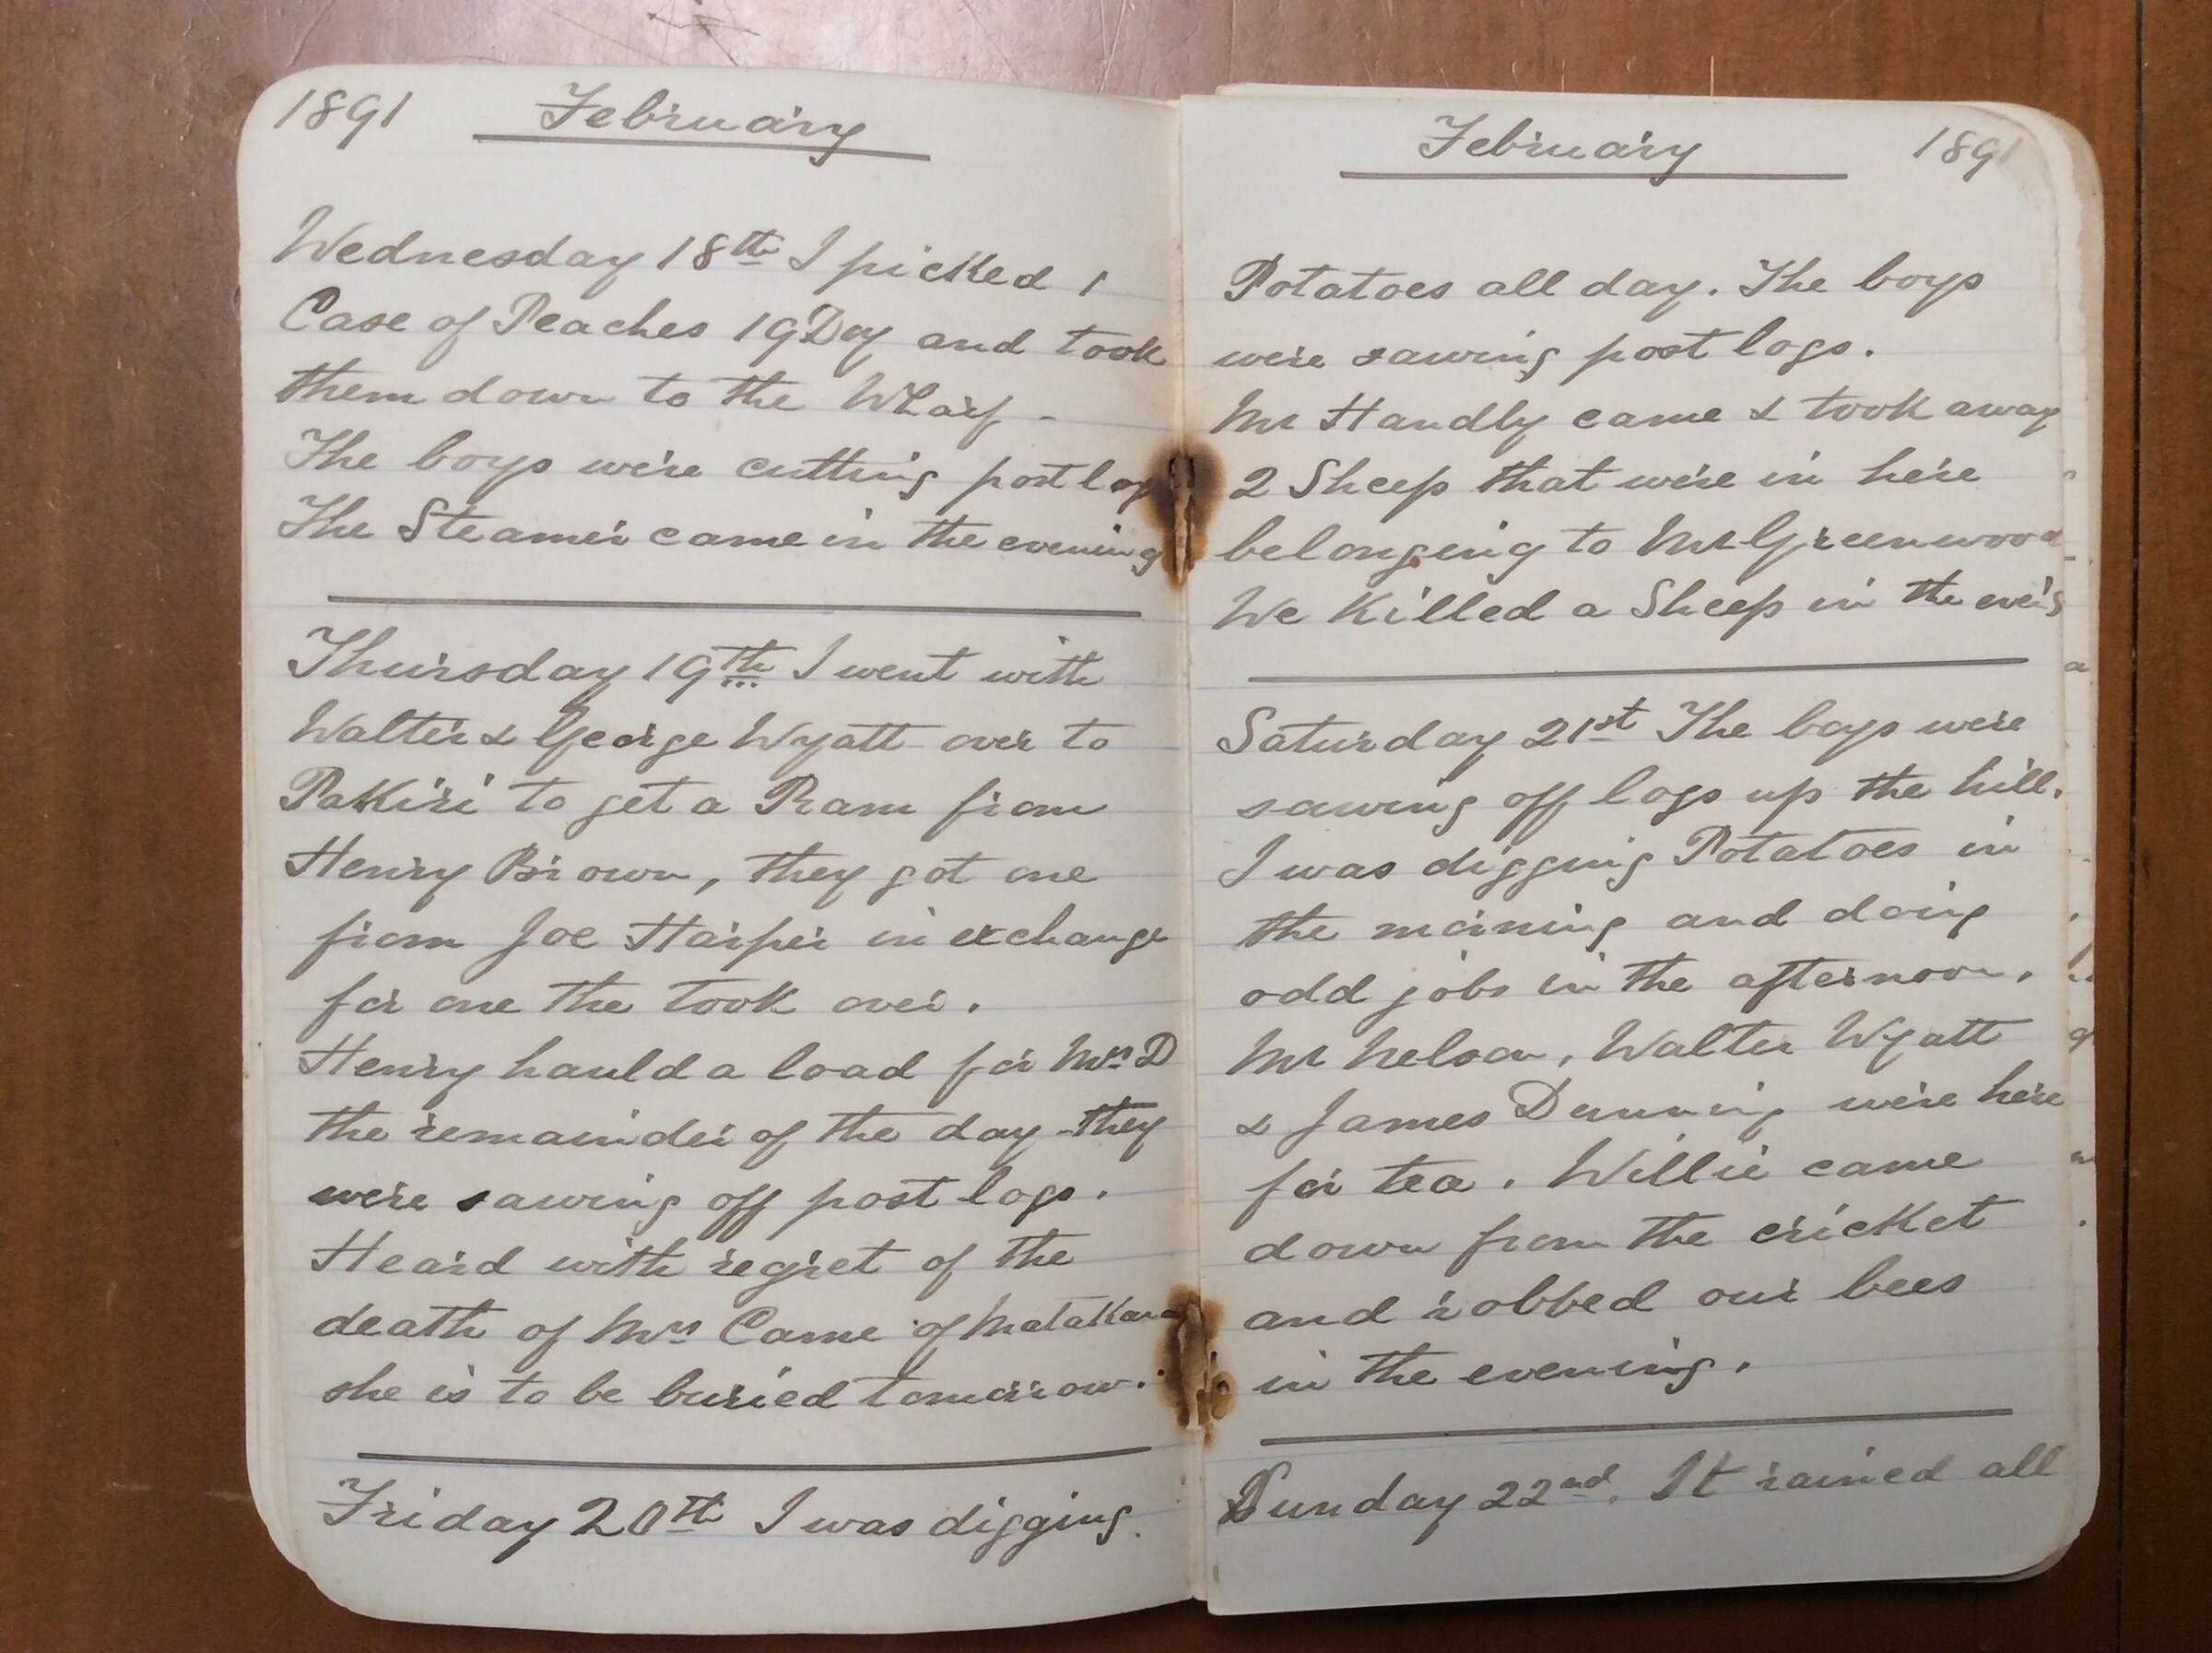 1891 February
Wednesday 18th I picked 1
Case of Peaches 19 Doz and took
them down to the Wharf -
The boys were cutting post log
The Steamer came in the evening
Thursday 19th I went with
Walter & George Wyatt over to
Pakiri to get a Ram from
Henry Brown, they got one
from Joe Harper in exchange
for one the took over.
Henry hauld a load for Mrs D
the remainder of the day they
were sawing off post logs.
Heard with regret of the
death of Mrs Came of Matakana
she is to be buried tomorrow.
Friday 20th I was digging
February 1891
Potatoes all day. The boys
were sawing post logs.
Mr Handly came & took away
2 Sheep that were in here
belonging to Mr Greenwood
We Killed a Sheep in the eve'g
Saturday 21st The boys were
sawing off logs up the hill.
I was digging Potatoes in
the morning and doing
odd jobs in the afternoon.
Mr Nelson, Walter Wyatt
& James Dunning were here
for tea. Willie came
down from the cricket
and robbed our bees
in the evening.
Sunday 22nd. It rained all